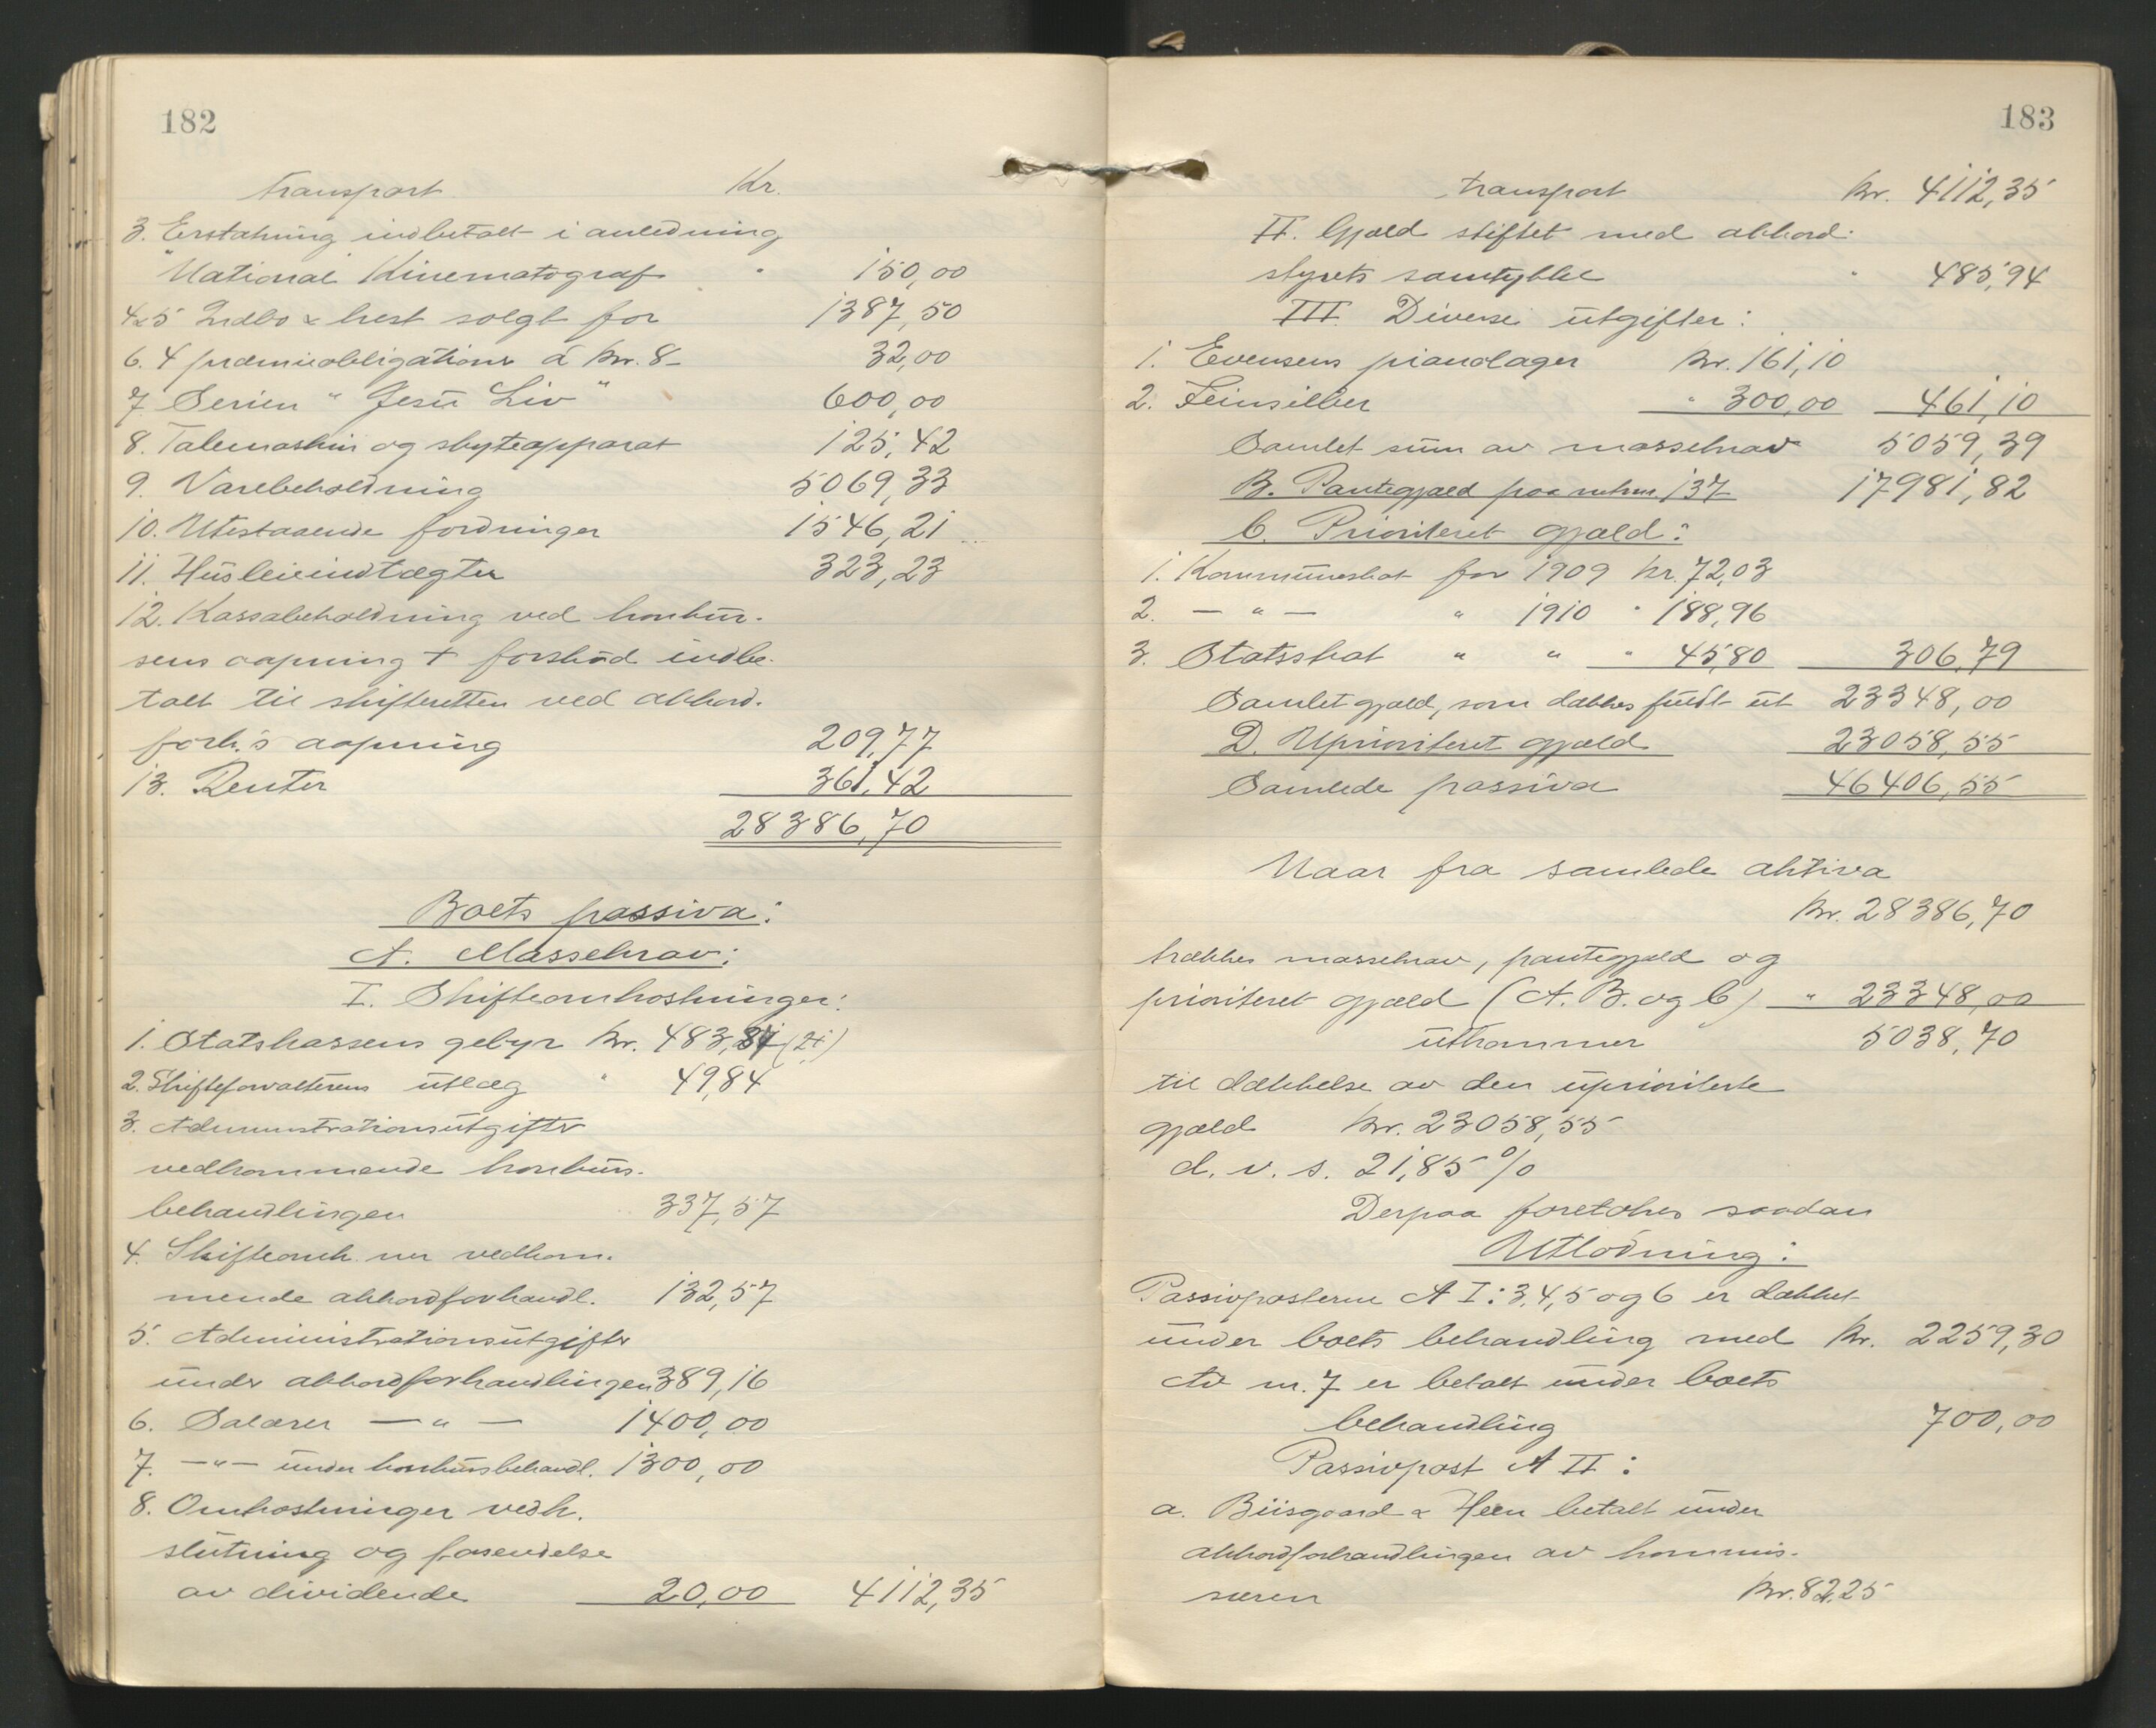 182
transport Kr.
3. Erstatning indbetalt i anledning
"National Kinematograf " 150,00
4&5 Indbo & hest solgt for 1387,50
6. 4 præmieobligations à kr. 8- 32,00
7. Serien "Jesu Liv" 600,00
8. Talemaskin og skyteapparat 125,42
9. Varebeholdning 5069,33
10. Utestaaende fordringer 1546,21
11. Husleieindtægter 323,23
12. Kassabeholdning ved konkur-
sens aapning + forskud indbe-
talt til skifteretten ved akkord-
forh.s aapning 209,77
13. Renter 361,42
28386,70
Boets passiva:
A. Massekrav:
I. Skifteomkostninger:
1. Statskassens gebyr kr. 483,21 (21)
2. Skifteforvalterens utlæg " 49,84
3. Administrationsutgifter
vedkommende konkurs-
behandlingen 337,57
4. Skifteomk. ner vedkom-
mende akkordforhandl. 132,57
5. Administrationsutgifter
under akkordforhandlingen 389,16
6. Salærer — " — 1400,00
7. — " — under konkursbehandl. 1300,00
8. Omkostninger vedk.
slutning og forsendelse
av dividende 20,00 4112,35
183
transport kr. 4112,35
II. Gjæld stiftet med akkord-
styrets samtykke " 485,94
III. Diverse utgifter:
1. Evensens pianolager kr. 161,10
2. Feinsilber " 300,00 461,10
Samlet sum av massekrav 5059,39
B. Pantegjæld paa mtnr 137 17981,82
C. Prioriteret gjæld:
1. Kommuneskat for 1909 kr. 72,03
2. — " — " 1910 " 188,96
3. Statsskat " " " 45,80 306,79
Samlet gjæld, som dækkes fuldt ut 23348,00
D. Uprioriteret gjæld 23058,55
Samlede passiva 46406,55
Naar fra samlede aktiva
kr. 28386,70
trækkes massekrav, pantegjæld og
prioriteret gjæld (A. B. og C) " 23348,00
utkommer 5038,70
til dækkelse av den uprioriterte
gjæld kr. 23058,55
d. v. s. 21,85 %
Derpaa foretokes saadan
Utlodning:
Passivposterne A I: 3, 4, 5 og 6 er dækket
under boets behandling med kr. 2259,30
Av nr. 7 er betalt under boets
behandling 700,00
Passivpost A II:
a. Biisgaard & Heen betalt under
akkordforhandlingen av kommis-
særen kr. 82,25